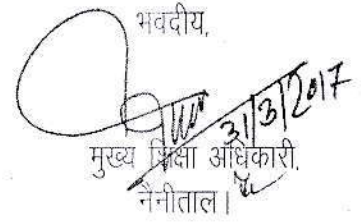 भवदीय,
31/3/2017
मुख्य शिक्षा अधिकारी,
नैनीताल।